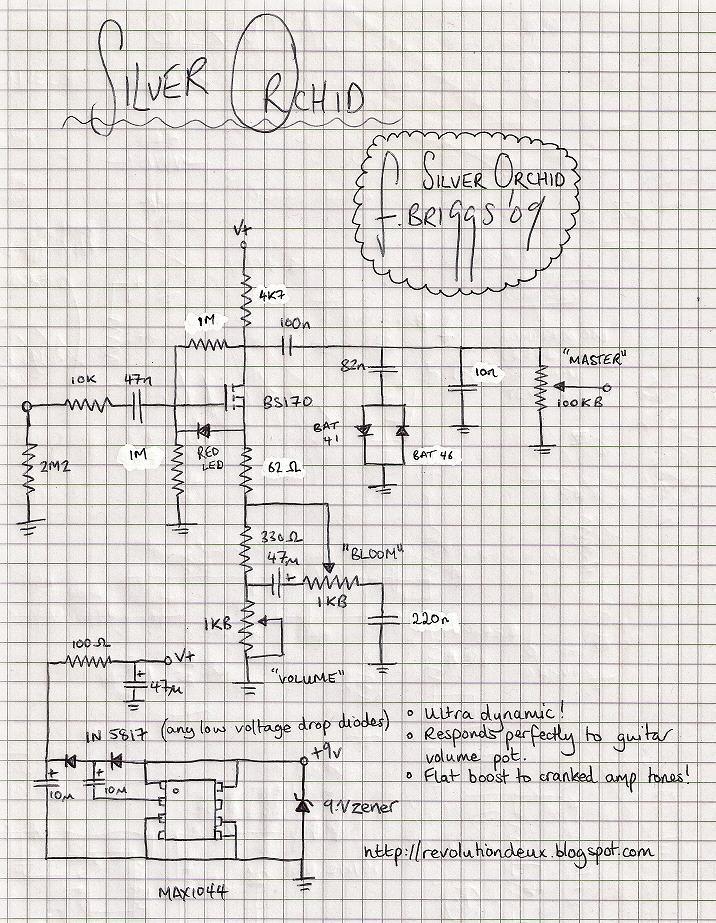 SILVER ORCHID
SILVER ORCHID
F. BRIGGS '09
V+
4K7
1M
100n
82n
10n
"MASTER"
100KB
10K
47n
BS170
BAT
41
BAT 46
2M2
1M
RED
LED
62 Ω
330Ω
47μ
"BLOOM"
1KB
1KB
220n
"VOLUME"
100Ω
V+
47μ
1N 5817 (any low voltage drop diodes)
+9v
10μ
10μ
9.1Vzener
MAX1044
• Ultra dynamic!
• Responds perfectly to guitar
volume pot.
• Flat boost to cranked amp tones!
http://revolutiondeux.blogspot.com